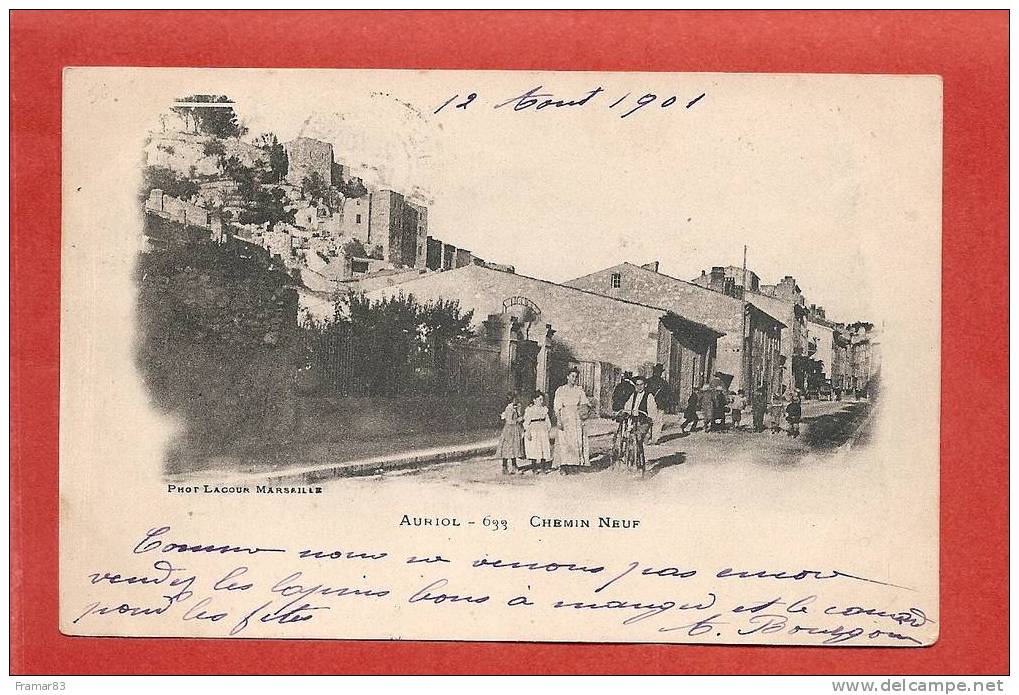 12 Aout 1901
PHOT LACOUR MARSEILLE
AURIOL - 633 CHEMIN NEUF
Comme nous ne venons pas encore
vendez les lapins bons à manger et le canard
pour les fêtes
Framar83
www.delcampe.net